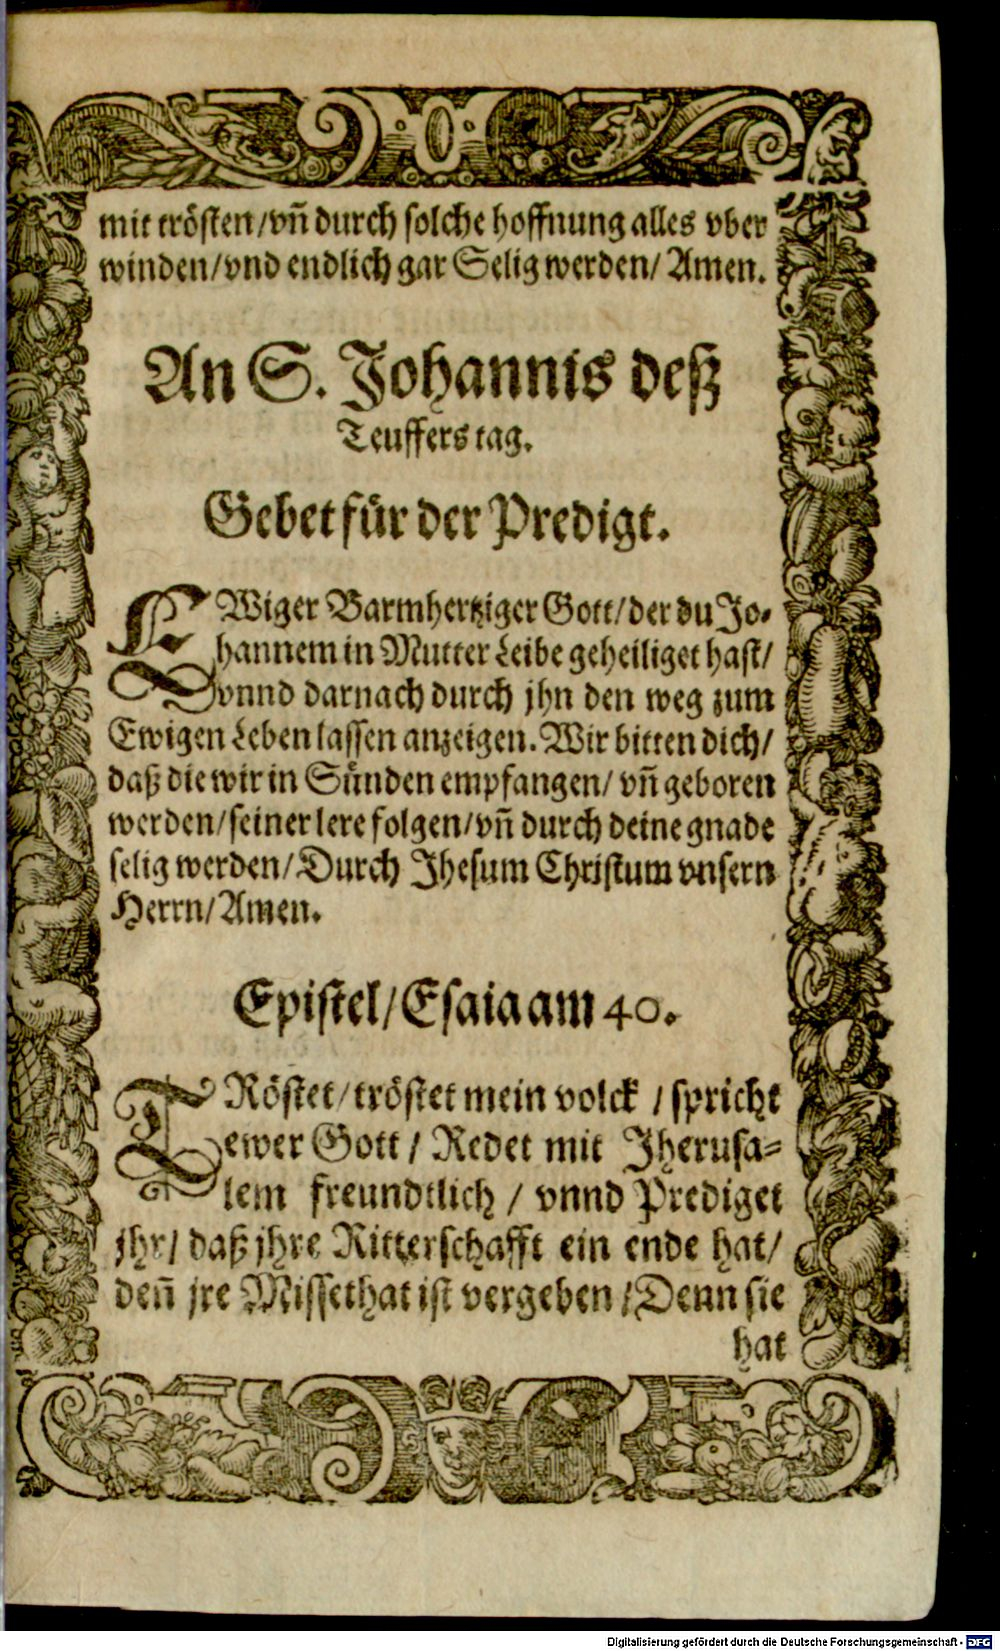 mit trösten/vn̄ durch solche hoffnung alles vber
winden/vnd endlich gar Selig werden/ Amen.
An S. Johannis deß
Teuffers tag.
Gebet für der Predigt.
EWiger Barmhertziger Gott/der du Jo-
hannem in Mutter Leibe geheiliget hast/
vnnd darnach durch jhn den weg zum
Ewigen Leben lassen anzeigen. Wir bitten dich/
daß die wir in Sünden empfangen/ vn̄ geboren
werden/seiner lere folgen/vn̄ durch deine gnade
selig werden/Durch Jhesum Christum vnsern
Herrn/Amen.
Epistel/Esaia am 40.
TRöstet/tröstet mein volck / spricht
ewer Gott / Redet mit Jherusa-
lem freundtlich / vnnd Prediget
jhr/ daß jhre Ritterschafft ein ende hat/
den̄ jre Missethat ist vergeben/Denn sie
hat
Digitalisierung gefördert durch die Deutsche Forschungsgemeinschaft - DFG